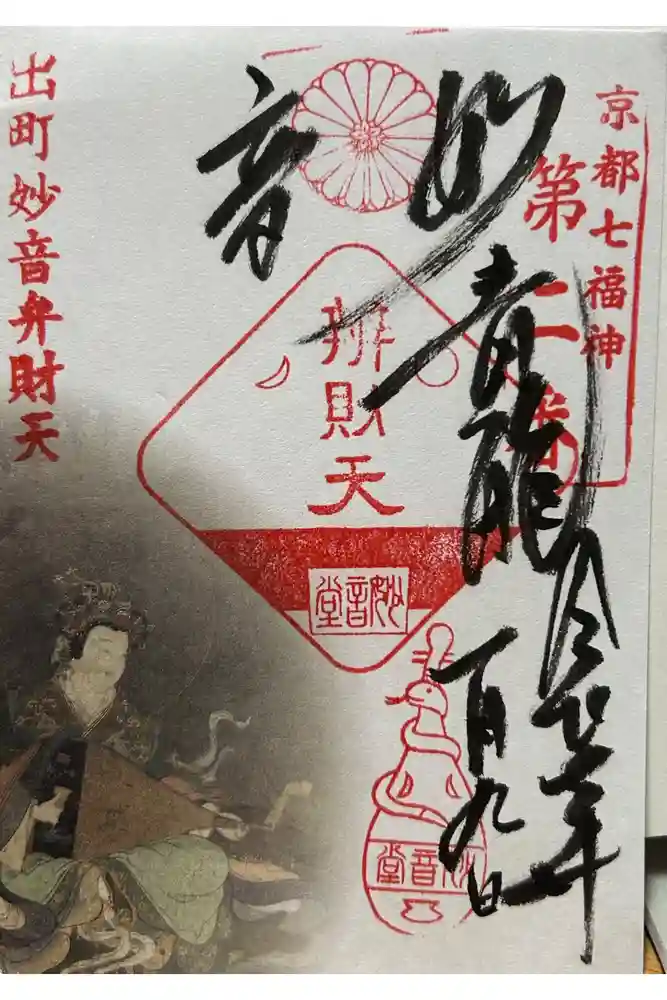 京都七福神
第二番
妙音
青龍
一月九日
辨財天
妙音堂
妙音堂
出町妙音弁財天